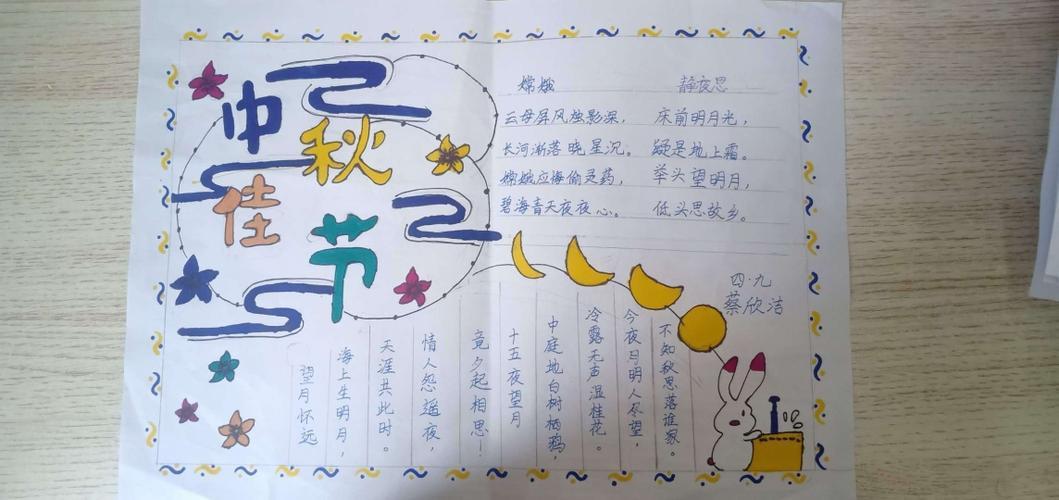 中秋
佳节
嫦娥
云母屏风烛影深，
长河渐落晓星沉。
嫦娥应悔偷灵药，
碧海青天夜夜心。
静夜思
床前明月光，
疑是地上霜。
举头望明月，
低头思故乡。
四·九
蔡欣洁
望月怀远
海上生明月，
天涯共此时。
情人怨遥夜，
竟夕起相思！
十五夜望月
中庭地白树栖鸦，
冷露无声湿桂花。
今夜月明人尽望，
不知秋思落谁家。